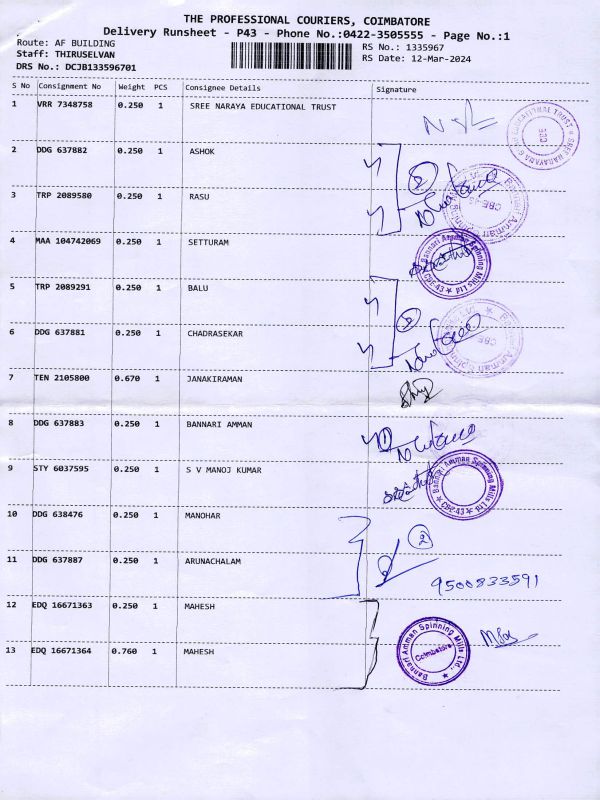 THE PROFESSIONAL COURIERS, COIMBATORE
Delivery Runsheet - P43 - Phone No.:0422-3505555 - Page No.:1
Route: AF BUILDING RS No.: 1335967
Staff: THIRUSELVAN RS Date: 12-Mar-2024
DRS No.: DCJB133596701
S No Consignment No Weight PCS Consignee Details Signature
1 VRR 7348758 0.250 1 SREE NARAYA EDUCATIONAL TRUST
2 DDG 637882 0.250 1 ASHOK
2
3 TRP 2089580 0.250 1 RASU
4 MAA 104742069 0.250 1 SETTURAM
Bannari Amman Spinning Mills Ltd
CBE-43
5 TRP 2089291 0.250 1 BALU
2
6 DDG 637881 0.250 1 CHADRASEKAR
7 TEN 2105800 0.670 1 JANAKIRAMAN
8 DDG 637883 0.250 1 BANNARI AMMAN
1
9 STY 6037595 0.250 1 S V MANOJ KUMAR
Bannari Amman Spinning Mills Ltd
CBE-43
10 DDG 638476 0.250 1 MANOHAR
2
11 DDG 637887 0.250 1 ARUNACHALAM
9500833591
12 EDQ 16671363 0.250 1 MAHESH
Bannari Amman Spinning Mills Ltd.,
Coimbatore
13 EDQ 16671364 0.760 1 MAHESH